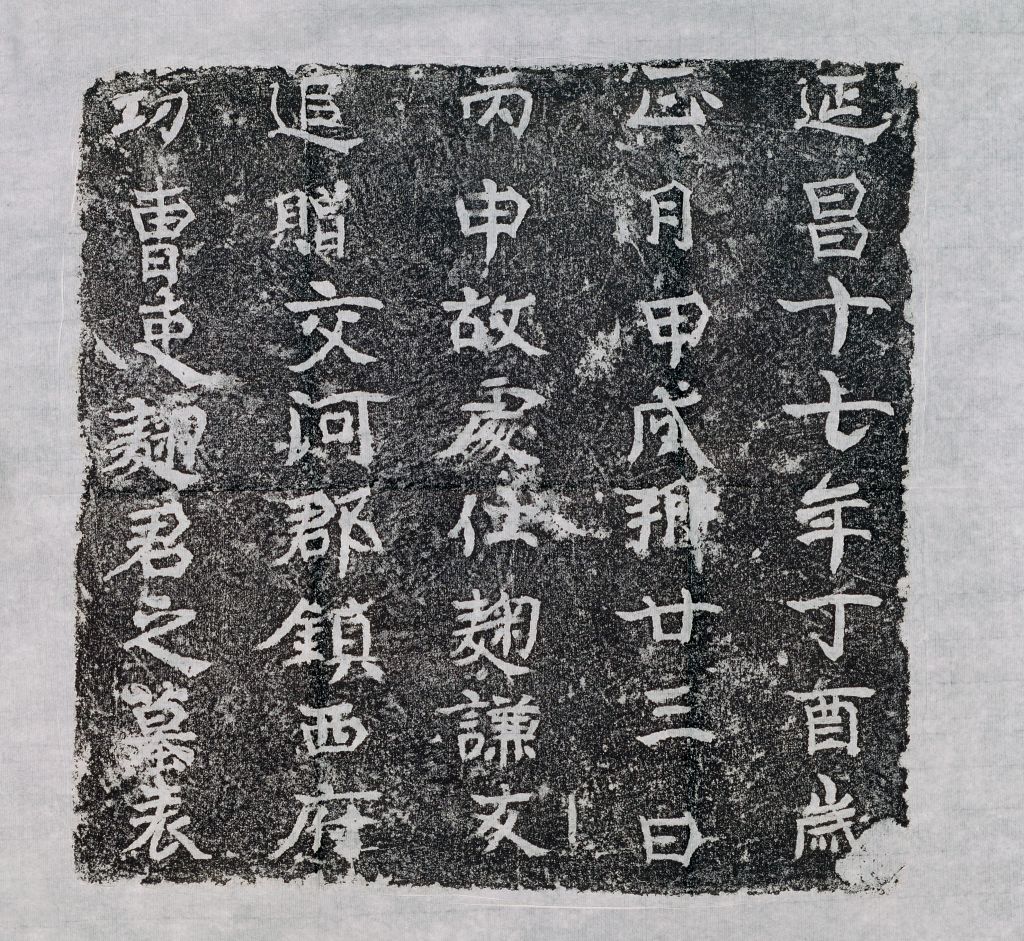 延昌十七年丁酉歲
正月甲戌朔廿三日
丙申故處仕麹謙友
追贈交河郡鎮西府
功曹吏麹君之墓表